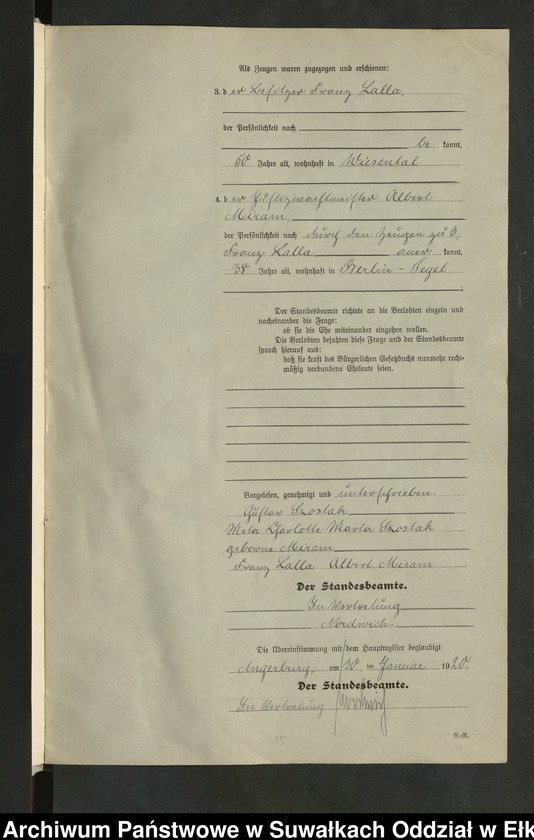 Als Zeugen waren zugezogen und erschienen:
3. der Besitzer Franz Lalla,
der Persönlichkeit nach
be kannt,
50 Jahre alt, wohnhaft in Wiesental
4. der Justizwachtmeister Albert
Miram,
der Persönlichkeit nach durch den Zeugen zu 3,
Franz Lalla aner kannt,
38 Jahre alt, wohnhaft in Berlin - Tegel
;
Der Standesbeamte richtete an die Verlobten einzeln und
nacheinander die Frage:
ob sie die Ehe miteinander eingehen wollen.
Die Verlobten bejahten diese Frage und der Standesbeamte
sprach hierauf aus:
daß sie kraft des Bürgerlichen Gesetzbuchs nunmehr recht-
mäßig verbundene Eheleute seien.
Vorgelesen, genehmigt und unterschrieben.
Gustav Szostak
Meta Charlotte Szostak
geborne Miram
Franz Lalla Albert Miram
Der Standesbeamte.
In Vertretung
Nordwich.
Die Übereinstimmung mit dem Hauptregister beglaubigt
Angerburg, am 30. im Januar 1920.
Der Standesbeamte.
In Vertretung
15
R.-R.
Archiwum Państwowe w Suwałkach Oddział w Ełk